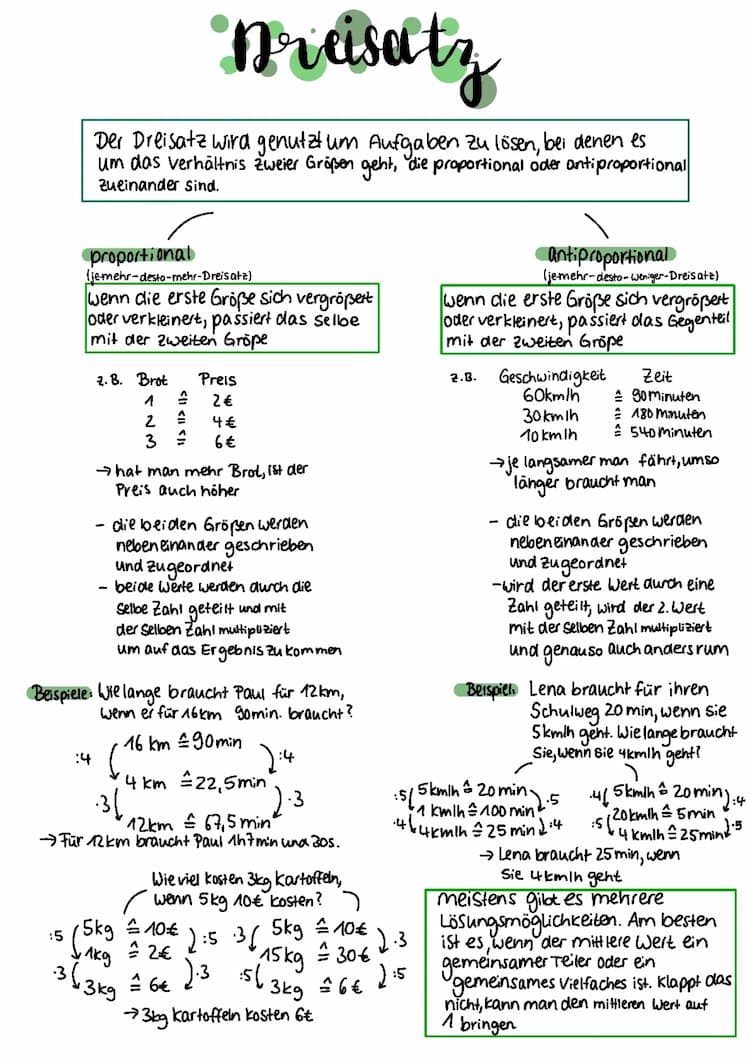 Dreisatz
Der Dreisatz wird genutzt um Aufgaben zu lösen, bei denen es
um das Verhältnis zweier Größen geht, die proportional oder antiproportional
zueinander sind.
proportional
(je-mehr-desto-mehr-Dreisatz)
Wenn die erste Größe sich vergrößert
oder verkleinert, passiert das Selbe
mit der zweiten Größe
z.B. Brot Preis
1 ≙ 2€
2 ≙ 4€
3 ≙ 6€
→ hat man mehr Brot, ist der
Preis auch höher
- die beiden Größen werden
nebeneinander geschrieben
und zugeordnet
- beide Werte werden durch die
Selbe Zahl geteilt und mit
der Selben Zahl multipliziert
um auf das Ergebnis zu kommen
Beispiele: Wie lange braucht Paul für 12km,
wenn er für 16km 90min. braucht?
16 km ≙ 90min
:4 :4
4 km ≙ 22,5min
·3 ·3
12km ≙ 67,5min
→ Für 12km braucht Paul 1h 7min und 30s.
Wie viel kosten 3kg Kartoffeln,
wenn 5kg 10€ kosten?
5kg ≙ 10€
:5 :5
1kg ≙ 2€
·3 ·3
3kg ≙ 6€
5kg ≙ 10€
·3 ·3
15kg ≙ 30€
:5 :5
3kg ≙ 6€
→ 3kg Kartoffeln kosten 6€
antiproportional
(je-mehr-desto-weniger-Dreisatz)
Wenn die erste Größe sich vergrößert
oder verkleinert, passiert das Gegenteil
mit der zweiten Größe
z.B. Geschwindigkeit Zeit
60km/h ≙ 90 minuten
30km/h ≙ 180 minuten
10km/h ≙ 540 minuten
→ je langsamer man fährt, umso
länger braucht man
- die beiden Größen werden
nebeneinander geschrieben
und zugeordnet
- wird der erste Wert durch eine
Zahl geteilt, wird der 2. Wert
mit der Selben Zahl multipliziert
und genauso auch andersrum
Beispiel: Lena braucht für ihren
Schulweg 20 min, wenn sie
5km/h geht. Wie lange braucht
Sie, wenn sie 4km/h geht?
5km/h ≙ 20min
:5 ·5
1 km/h ≙ 100min
·4 :4
4km/h ≙ 25min
5km/h ≙ 20min
·4 :4
20km/h ≙ 5min
:5 ·5
4km/h ≙ 25min
→ Lena braucht 25min, wenn
Sie 4km/h geht
Meistens gibt es mehrere
Lösungsmöglichkeiten. Am besten
ist es, wenn der mittlere Wert ein
gemeinsamer Teiler oder ein
gemeinsames Vielfaches ist. Klappt das
nicht, kann man den mittleren Wert auf
1 bringen